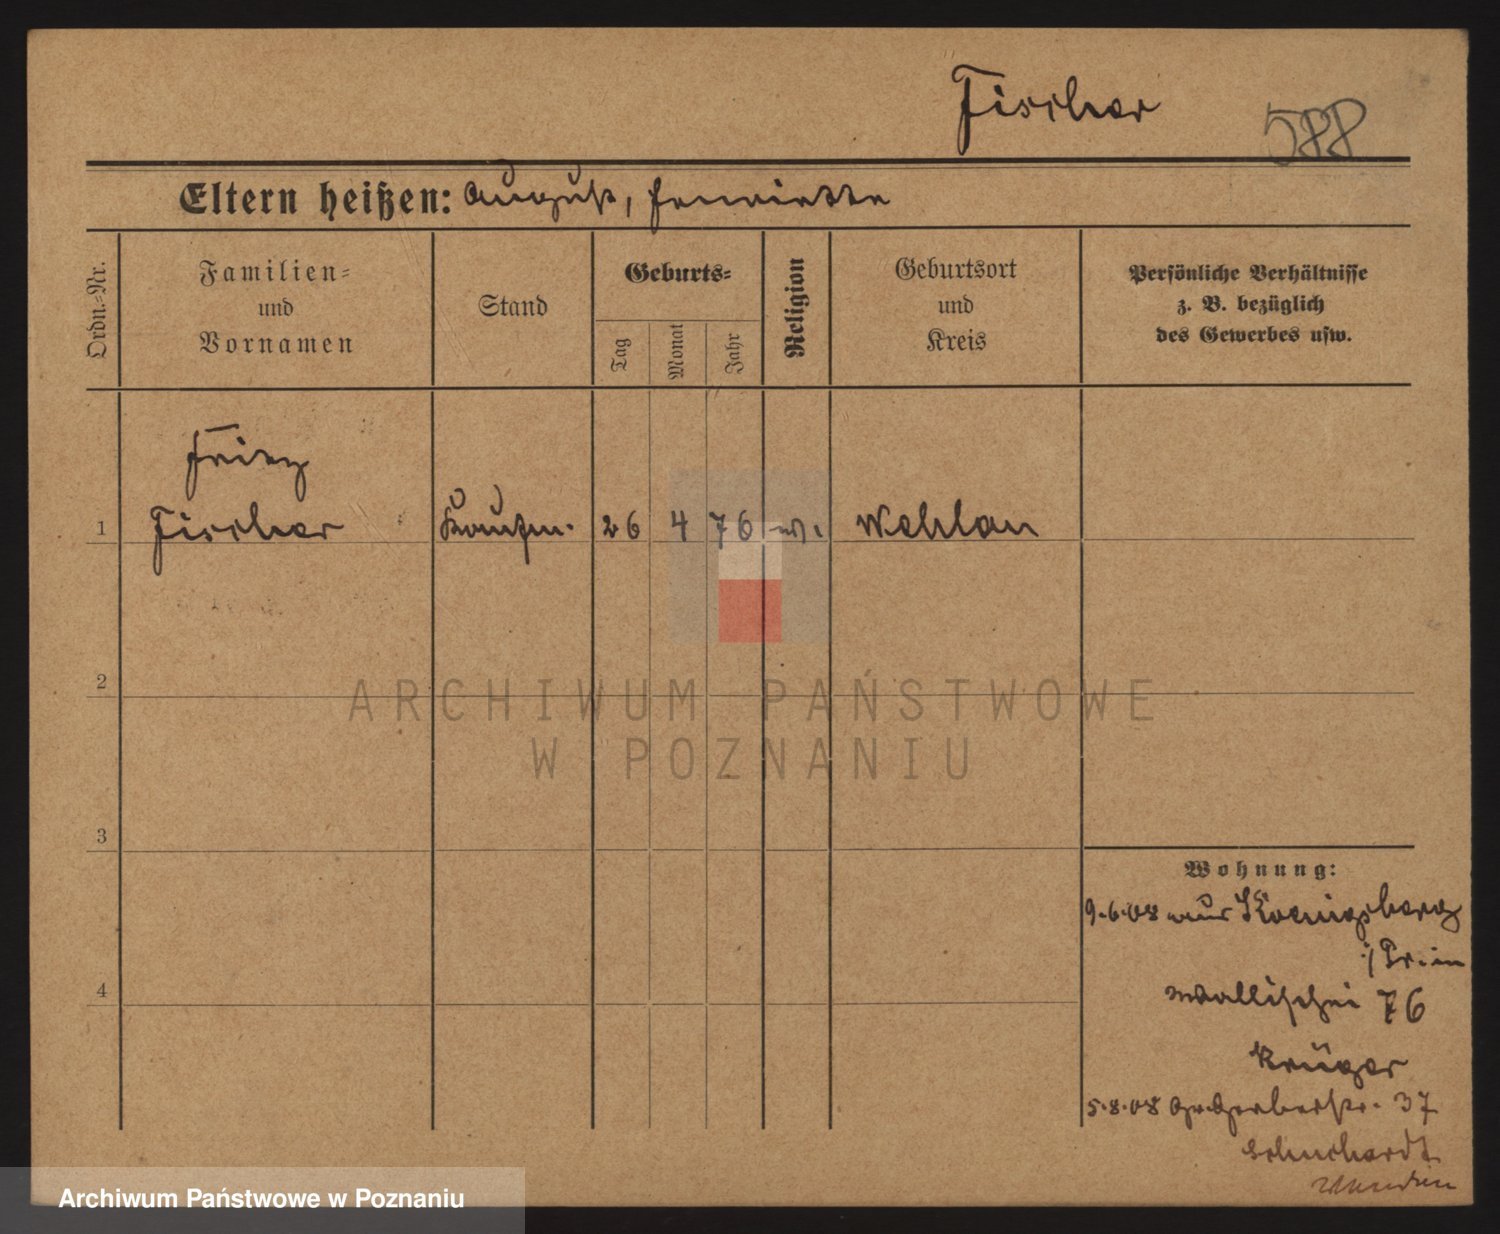 Fischer
588
Eltern heißen: August, Henriette
Ordn.-Nr.
Familien-
und
Vornamen
Stand
Geburts-
Tag
Monat
Jahr
Religion
Geburtsort
und
Kreis
Persönliche Verhältnisse
z. B. bezüglich
des Gewerbes usw.
Fritz
1 Fischer Kaufm. 26 4 76 Wehlau
2
ARCHIWUM PAŃSTWOWE
W POZNANIU
3
Wohnung:
9.6.08 Koenigsberg
i/Pr. in
Wallischei 76
Krüger
4
5.8.08 Gr. Gerberstr. 37
Schuchardt
Archiwum Państwowe w Poznaniu